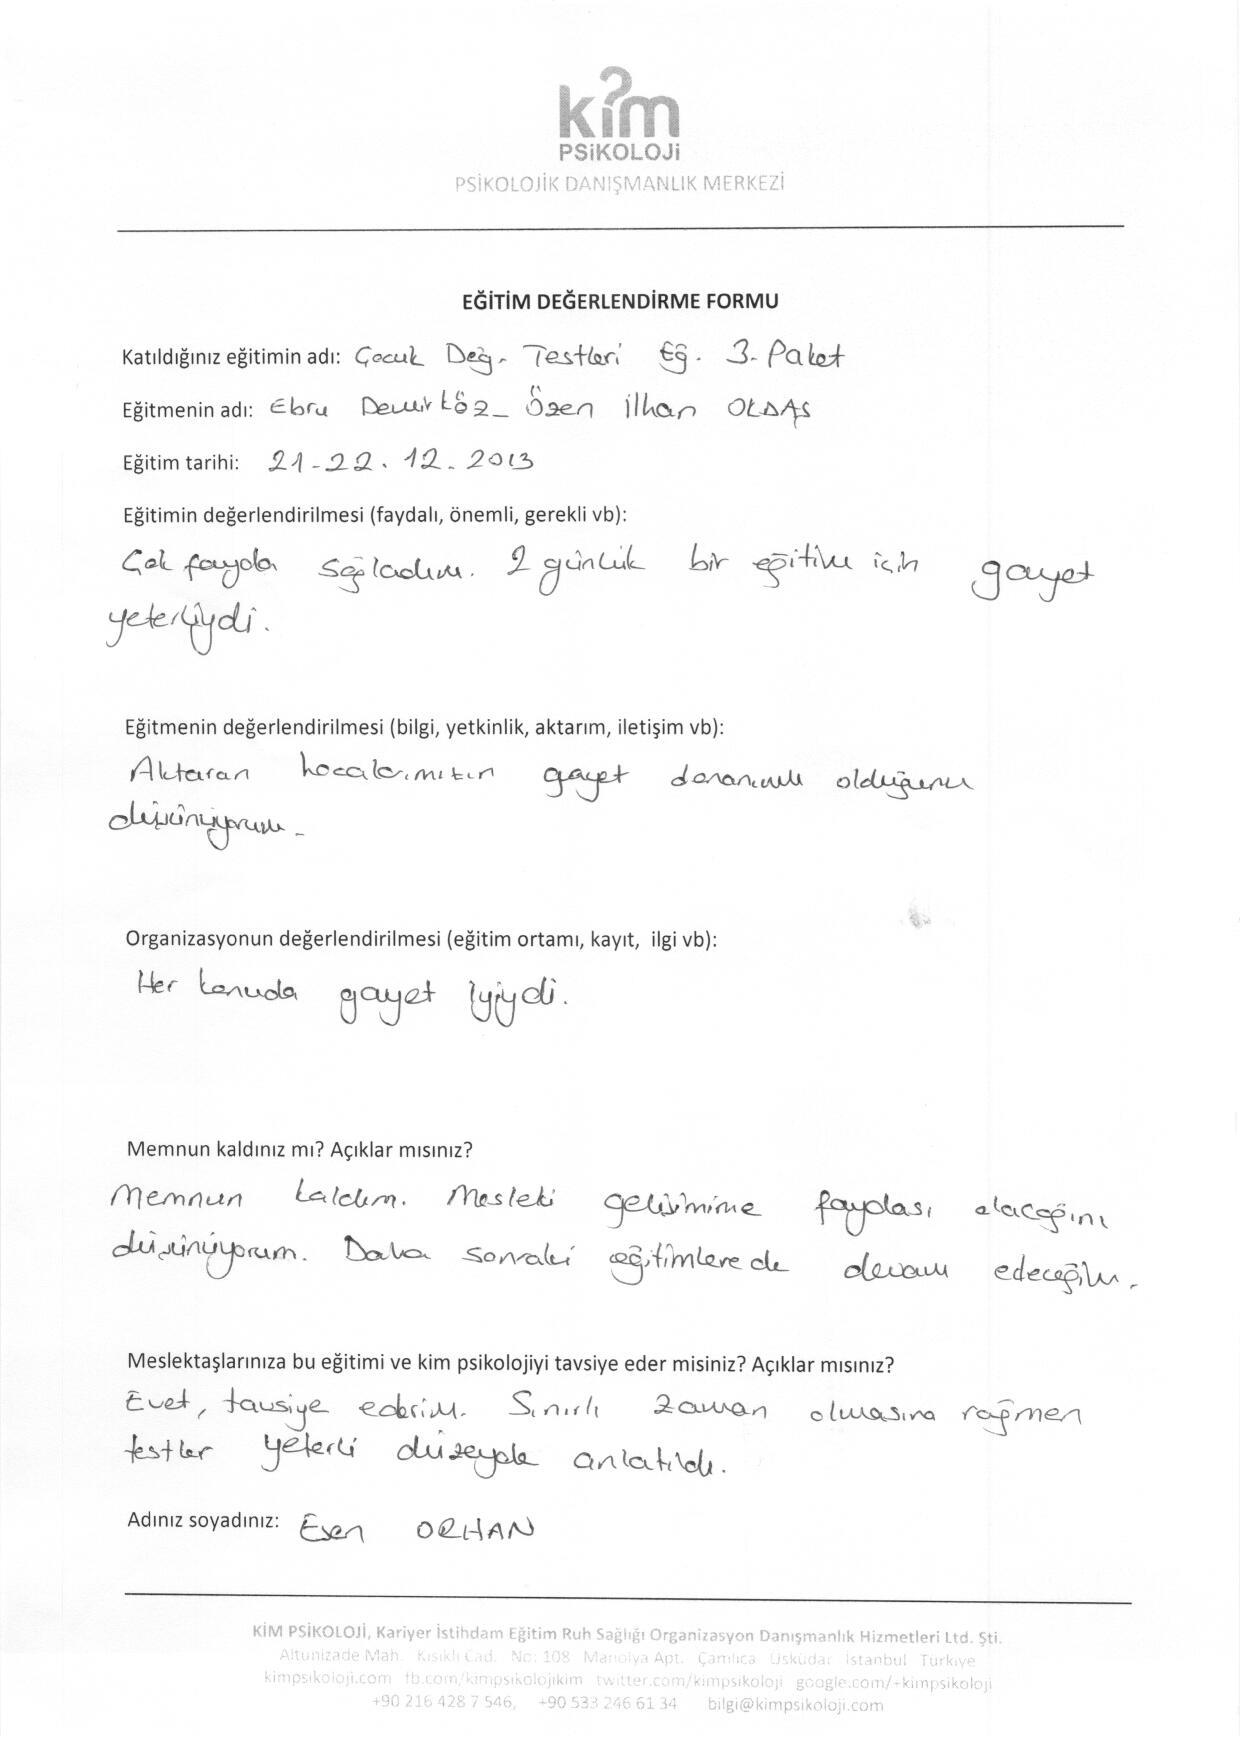 kim
PSİKOLOJİ
PSİKOLOJİK DANIŞMANLIK MERKEZİ
EĞİTİM DEĞERLENDİRME FORMU
Katıldığınız eğitimin adı: Çocuk Değ. Testleri Eğ. 3. Paket
Eğitmenin adı: Ebru Demirköz_ Özen İlhan OLDAŞ
Eğitim tarihi: 21-22.12.2013
Eğitimin değerlendirilmesi (faydalı, önemli, gerekli vb):
Çok fayda sağladım. 2 günlük bir eğitim için gayet
yeterliydi.
Eğitmenin değerlendirilmesi (bilgi, yetkinlik, aktarım, iletişim vb):
Aktaran hocalarımızın gayet donanımlı olduğunu
düşünüyorum.
Organizasyonun değerlendirilmesi (eğitim ortamı, kayıt, ilgi vb):
Her konuda gayet iyiydi.
Memnun kaldınız mı? Açıklar mısınız?
Memnun kaldım. Mesleki gelişimime faydası olacağını
düşünüyorum. Daha sonraki eğitimlere de devam edeceğim.
Meslektaşlarınıza bu eğitimi ve kim psikolojiyi tavsiye eder misiniz? Açıklar mısınız?
Evet, tavsiye ederim. Sınırlı zaman olmasına rağmen
testler yeterli düzeyde anlatıldı.
Adınız soyadınız: Esen ORHAN
KİM PSİKOLOJİ, Kariyer İstihdam Eğitim Ruh Sağlığı Organizasyon Danışmanlık Hizmetleri Ltd. Şti.
Altunizade Mah. Kısıklı Cad. No: 108 Manolya Apt. Çamlıca Üsküdar İstanbul Türkiye
kimpsikoloji.com fb.com/kimpsikolojikim twitter.com/kimpsikoloji google.com/+kimpsikoloji
+90 216 428 7 546, +90 533 246 61 34 bilgi@kimpsikoloji.com